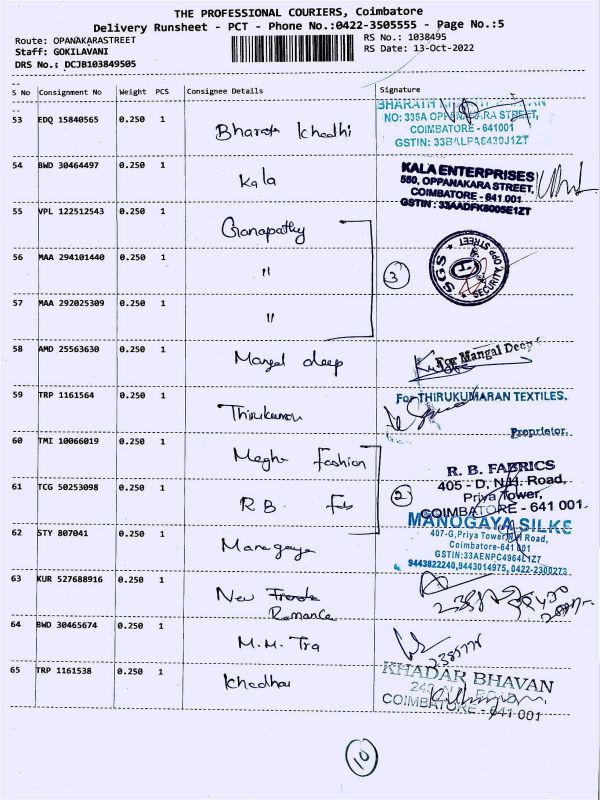 THE PROFESSIONAL COURIERS, Coimbatore
Delivery Runsheet - PCT - Phone No.:0422-3505555 - Page No.:5
Route: OPANAKARASTREET
Staff: GOKILAVANI
DRS No.: DCJB103849505
RS No.: 1038495
RS Date: 13-Oct-2022
S No Consignment No Weight PCS Consignee Details Signature
53 EDQ 15840565 0.250 1 Bharata Khadhi
NO: 336A OPPANAKARA STREET,
COIMBATORE - 641001
54 BWD 30464497 0.250 1 Kala
KALA ENTERPRISES
550, OPPANAKARA STREET,
COIMBATORE - 641 001
GSTIN : 33AADFK8005E1ZT
55 VPL 122512543 0.250 1 Ganapathy
56 MAA 294101440 0.250 1 "
3
SGS SECURITY, OPP STREET
57 MAA 292025309 0.250 1 "
58 AMD 25563630 0.250 1 Mangal deep
For Mangal Deep
59 TRP 1161564 0.250 1 Thirukumaran
For THIRUKUMARAN TEXTILES.
Proprietor.
60 TMI 10066019 0.250 1 Megha Fashion
61 TCG 50253098 0.250 1 R.B. Fab
2
R. B. FABRICS
405 - D, N.H. Road,
Priya Tower,
COIMBATORE - 641 001.
62 STY 807041 0.250 1 Manogaya
MANOGAYA SILKS
407-G,Priya Tower,N.H Road,
Coimbatore-641 001
GSTIN:33AENPC4964L1Z7
9443822240,9443014975, 0422-2300273
63 KUR 527688916 0.250 1 New
Romance
64 BWD 30465674 0.250 1 M.M. Tra
65 TRP 1161538 0.250 1 Khadhar
KHADAR BHAVAN
COIMBATORE - 641 001
10